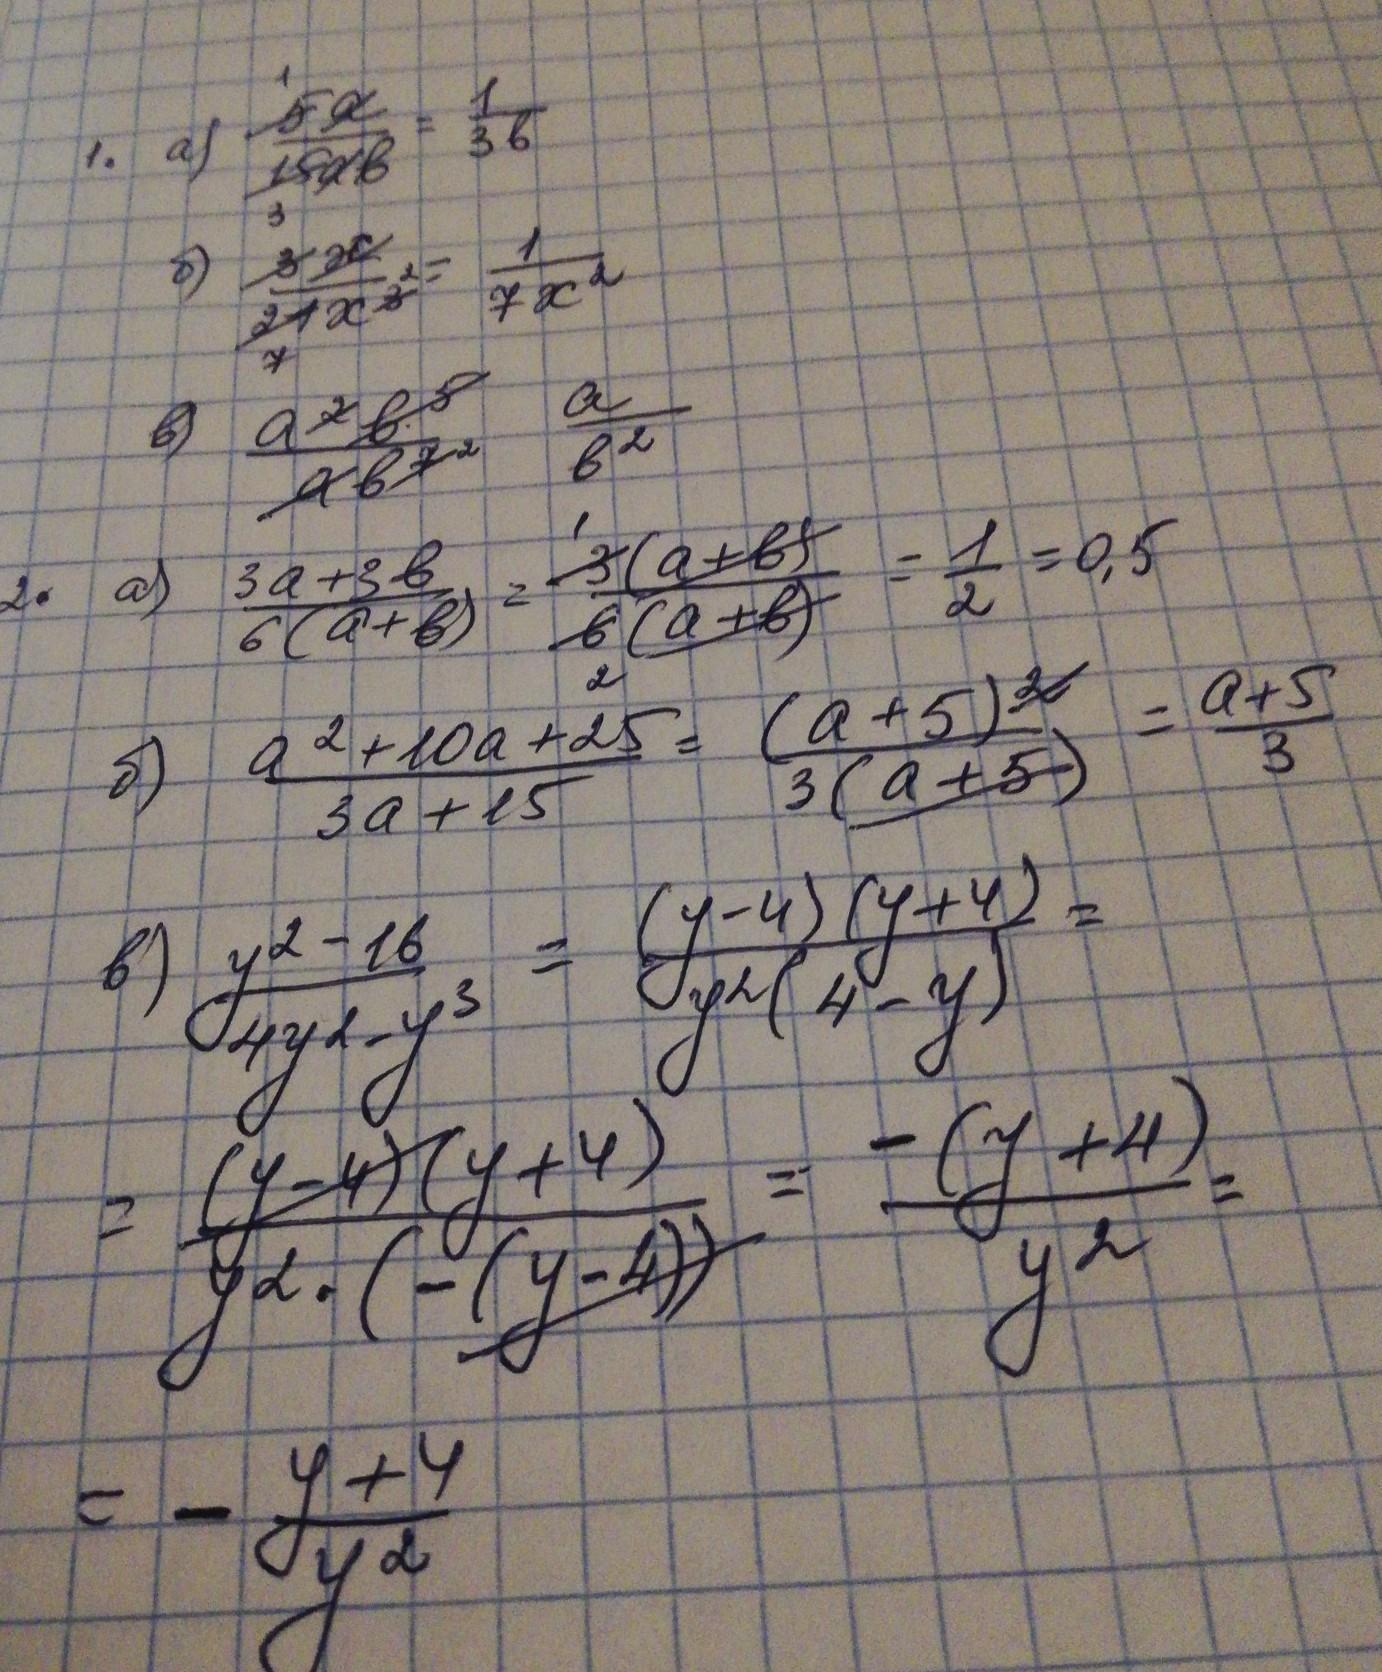 1. а) 5a/15ab = 1/3b
1
3
б) 3x/21x³ = 1/7x²
2
7
в) a²b⁵/ab⁷ a/b²
2
2. а) 3a+3b/6(a+b) = 3(a+b)/6(a+b) = 1/2 = 0,5
1 1
2
б) a²+10a+25/3a+15 = (a+5)²/3(a+5) = a+5/3
в) y²-16/4y²-y³ = (y-4)(y+4)/y²(4-y) =
= (y-4)(y+4)/y²·(-(y-4)) = -(y+4)/y² =
= - y+4/y²